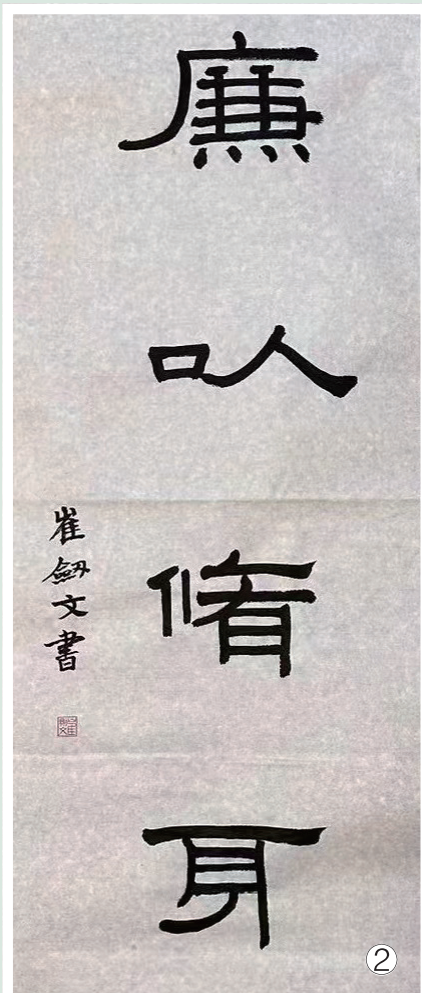 廉以脩身
崔劔文書
②